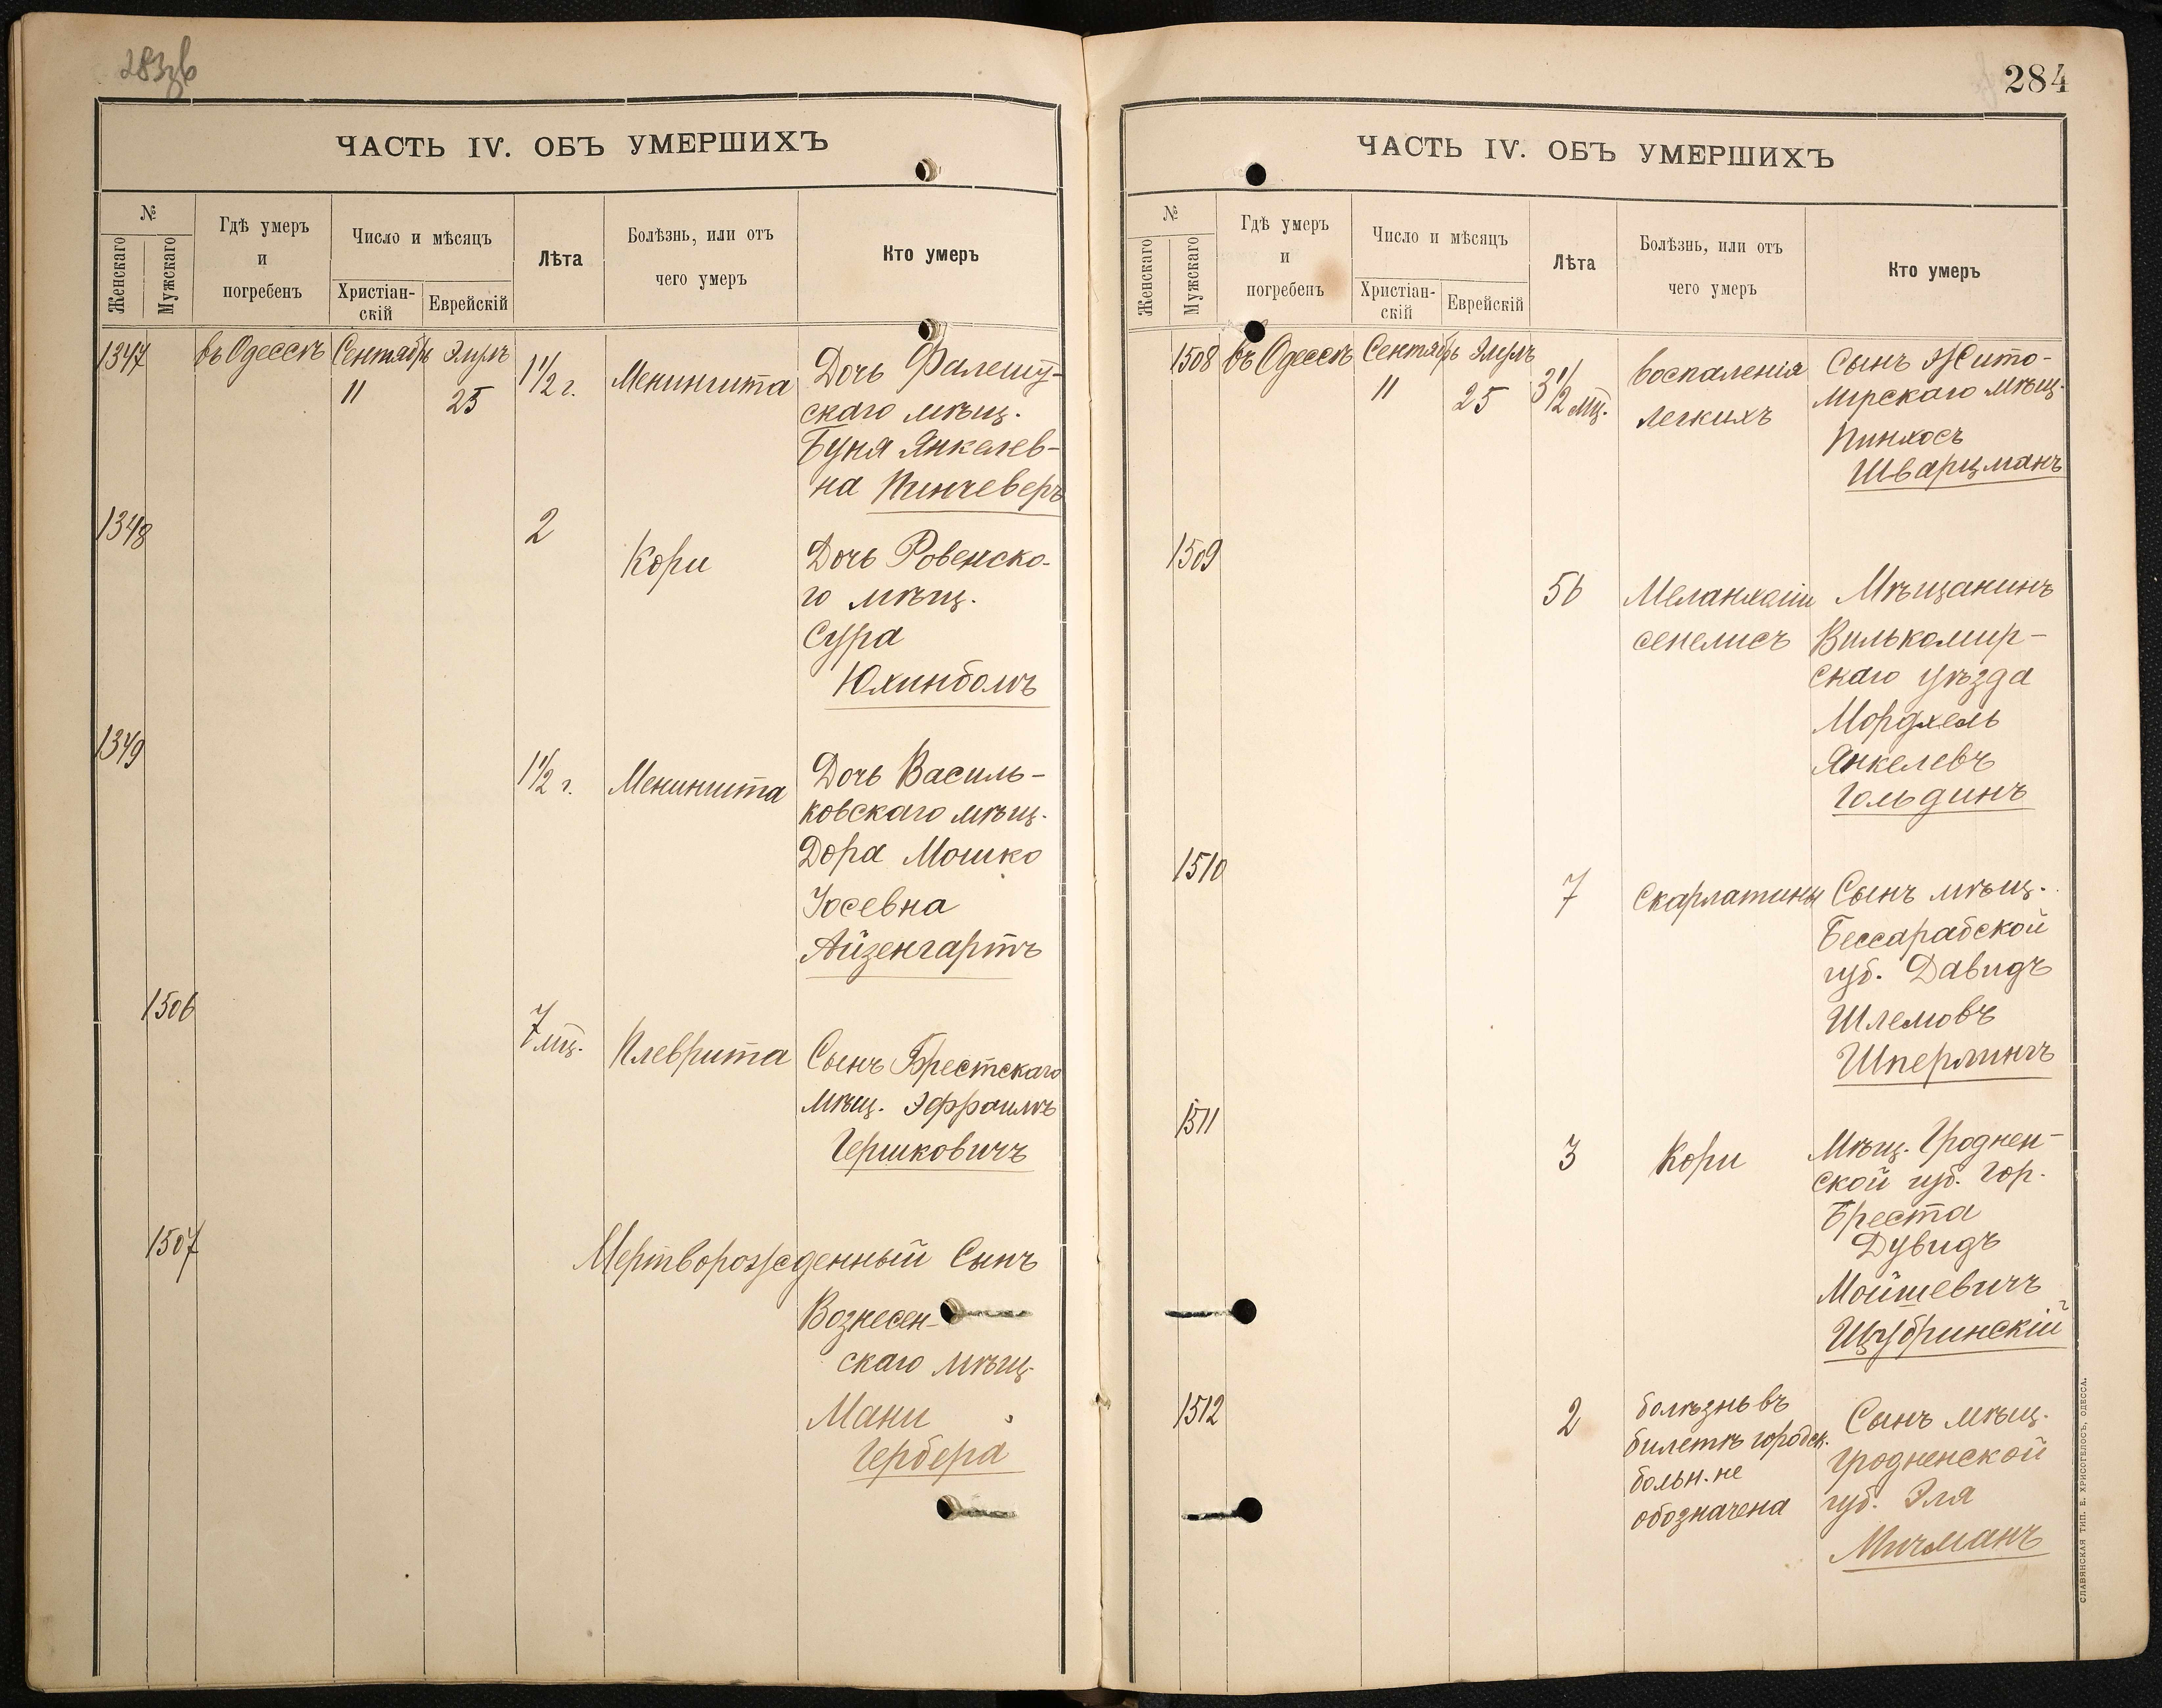 283об
ЧАСТЬ IV. ОБЪ УМЕРШИХЪ
№
Женскаго
Мужскаго
Гдѣ умеръ
и
погребенъ
Число и мѣсяцъ
Христіан-
скій
Еврейскій
Лѣта
Болѣзнь, или отъ
чего умеръ
Кто умеръ
1347 въ Одессѣ Сентябрь 11 Элулъ 25 1 1/2 г. Менингита Дочь Фалешу-
скаго мѣщ.
Буня Янкелев-
на Пинчеверъ
1348 2 Кори Дочь Ровенско-
го мѣщ.
Сура
Юхинбомъ
1349 1 1/2 г. Менингита Дочь Василь-
ковскаго мѣщ.
Дора Мошко
Іосевна
Айзенгартъ
1506 7 мц. Плеврита Сынъ Брестскаго
мѣщ. Эфраимъ
Гершковичъ
1507 Мертворожденный Сынъ
Вознесен-
скаго мѣщ.
Мани
Гербера
284
ЧАСТЬ IV. ОБЪ УМЕРШИХЪ
№
Женскаго
Мужскаго
Гдѣ умеръ
и
погребенъ
Число и мѣсяцъ
Христіан-
скій
Еврейскій
Лѣта
Болѣзнь, или отъ
чего умеръ
Кто умеръ
1508 въ Одессѣ Сентябрь 11 Элулъ 25 3 1/2 мц. воспаленія Сынъ Жито-
легкихъ мірскаго мѣщ.
Пинхосъ
Шварцманъ
1509 56 Меланхоліи Мѣщанинъ
сенелисъ Вилькомир-
скаго уѣзда
Мордхель
Янкелевъ
Гольдинъ
1510 7 Скарлатины Сынъ мѣщ.
Бессарабской
губ. Давидъ
Шлемовъ
Шперлингъ
1511 3 Кори Мѣщ. Гроднен-
ской губ. гор.
Бреста
Дувидъ
Мойшевичъ
Щубринскій
1512 2 болѣзнь въ Сынъ мѣщ.
билетѣ городск. Гродненской
больн. не губ. Эля
обозначена Мичманъ
СЛАВЯНСКАЯ ТИП. Е. ХРИСОГЕЛОСЪ, ОДЕССА.